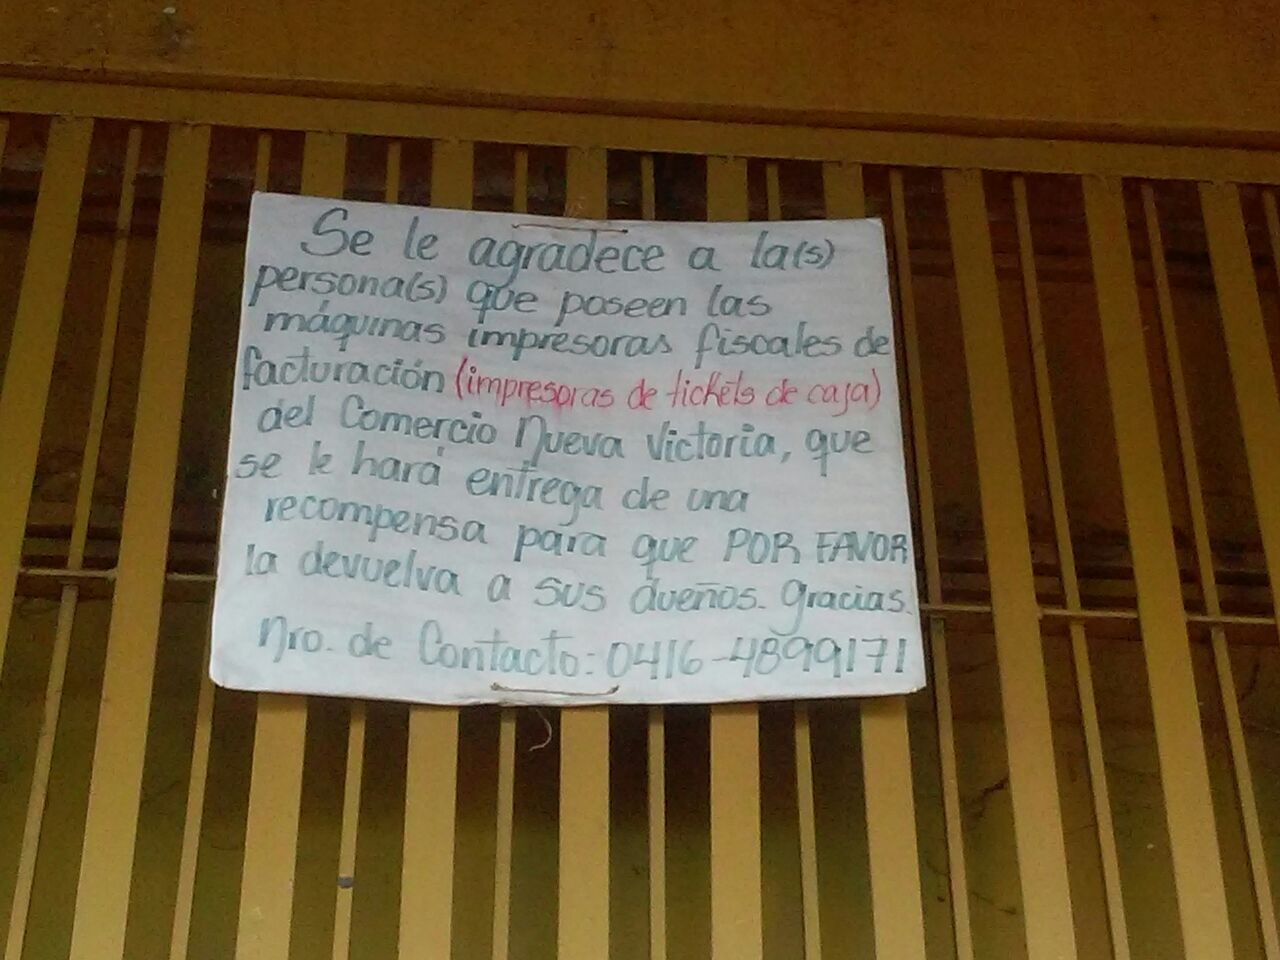 Se le agradece a la(s)
persona(s) que poseen las
máquinas impresoras fiscales de
facturación (impresoras de tickets de caja)
del Comercio Nueva Victoria, que
se le hará entrega de una
recompensa para que POR FAVOR
la devuelva a sus dueños. Gracias.
Nro. de Contacto: 0416-4899171